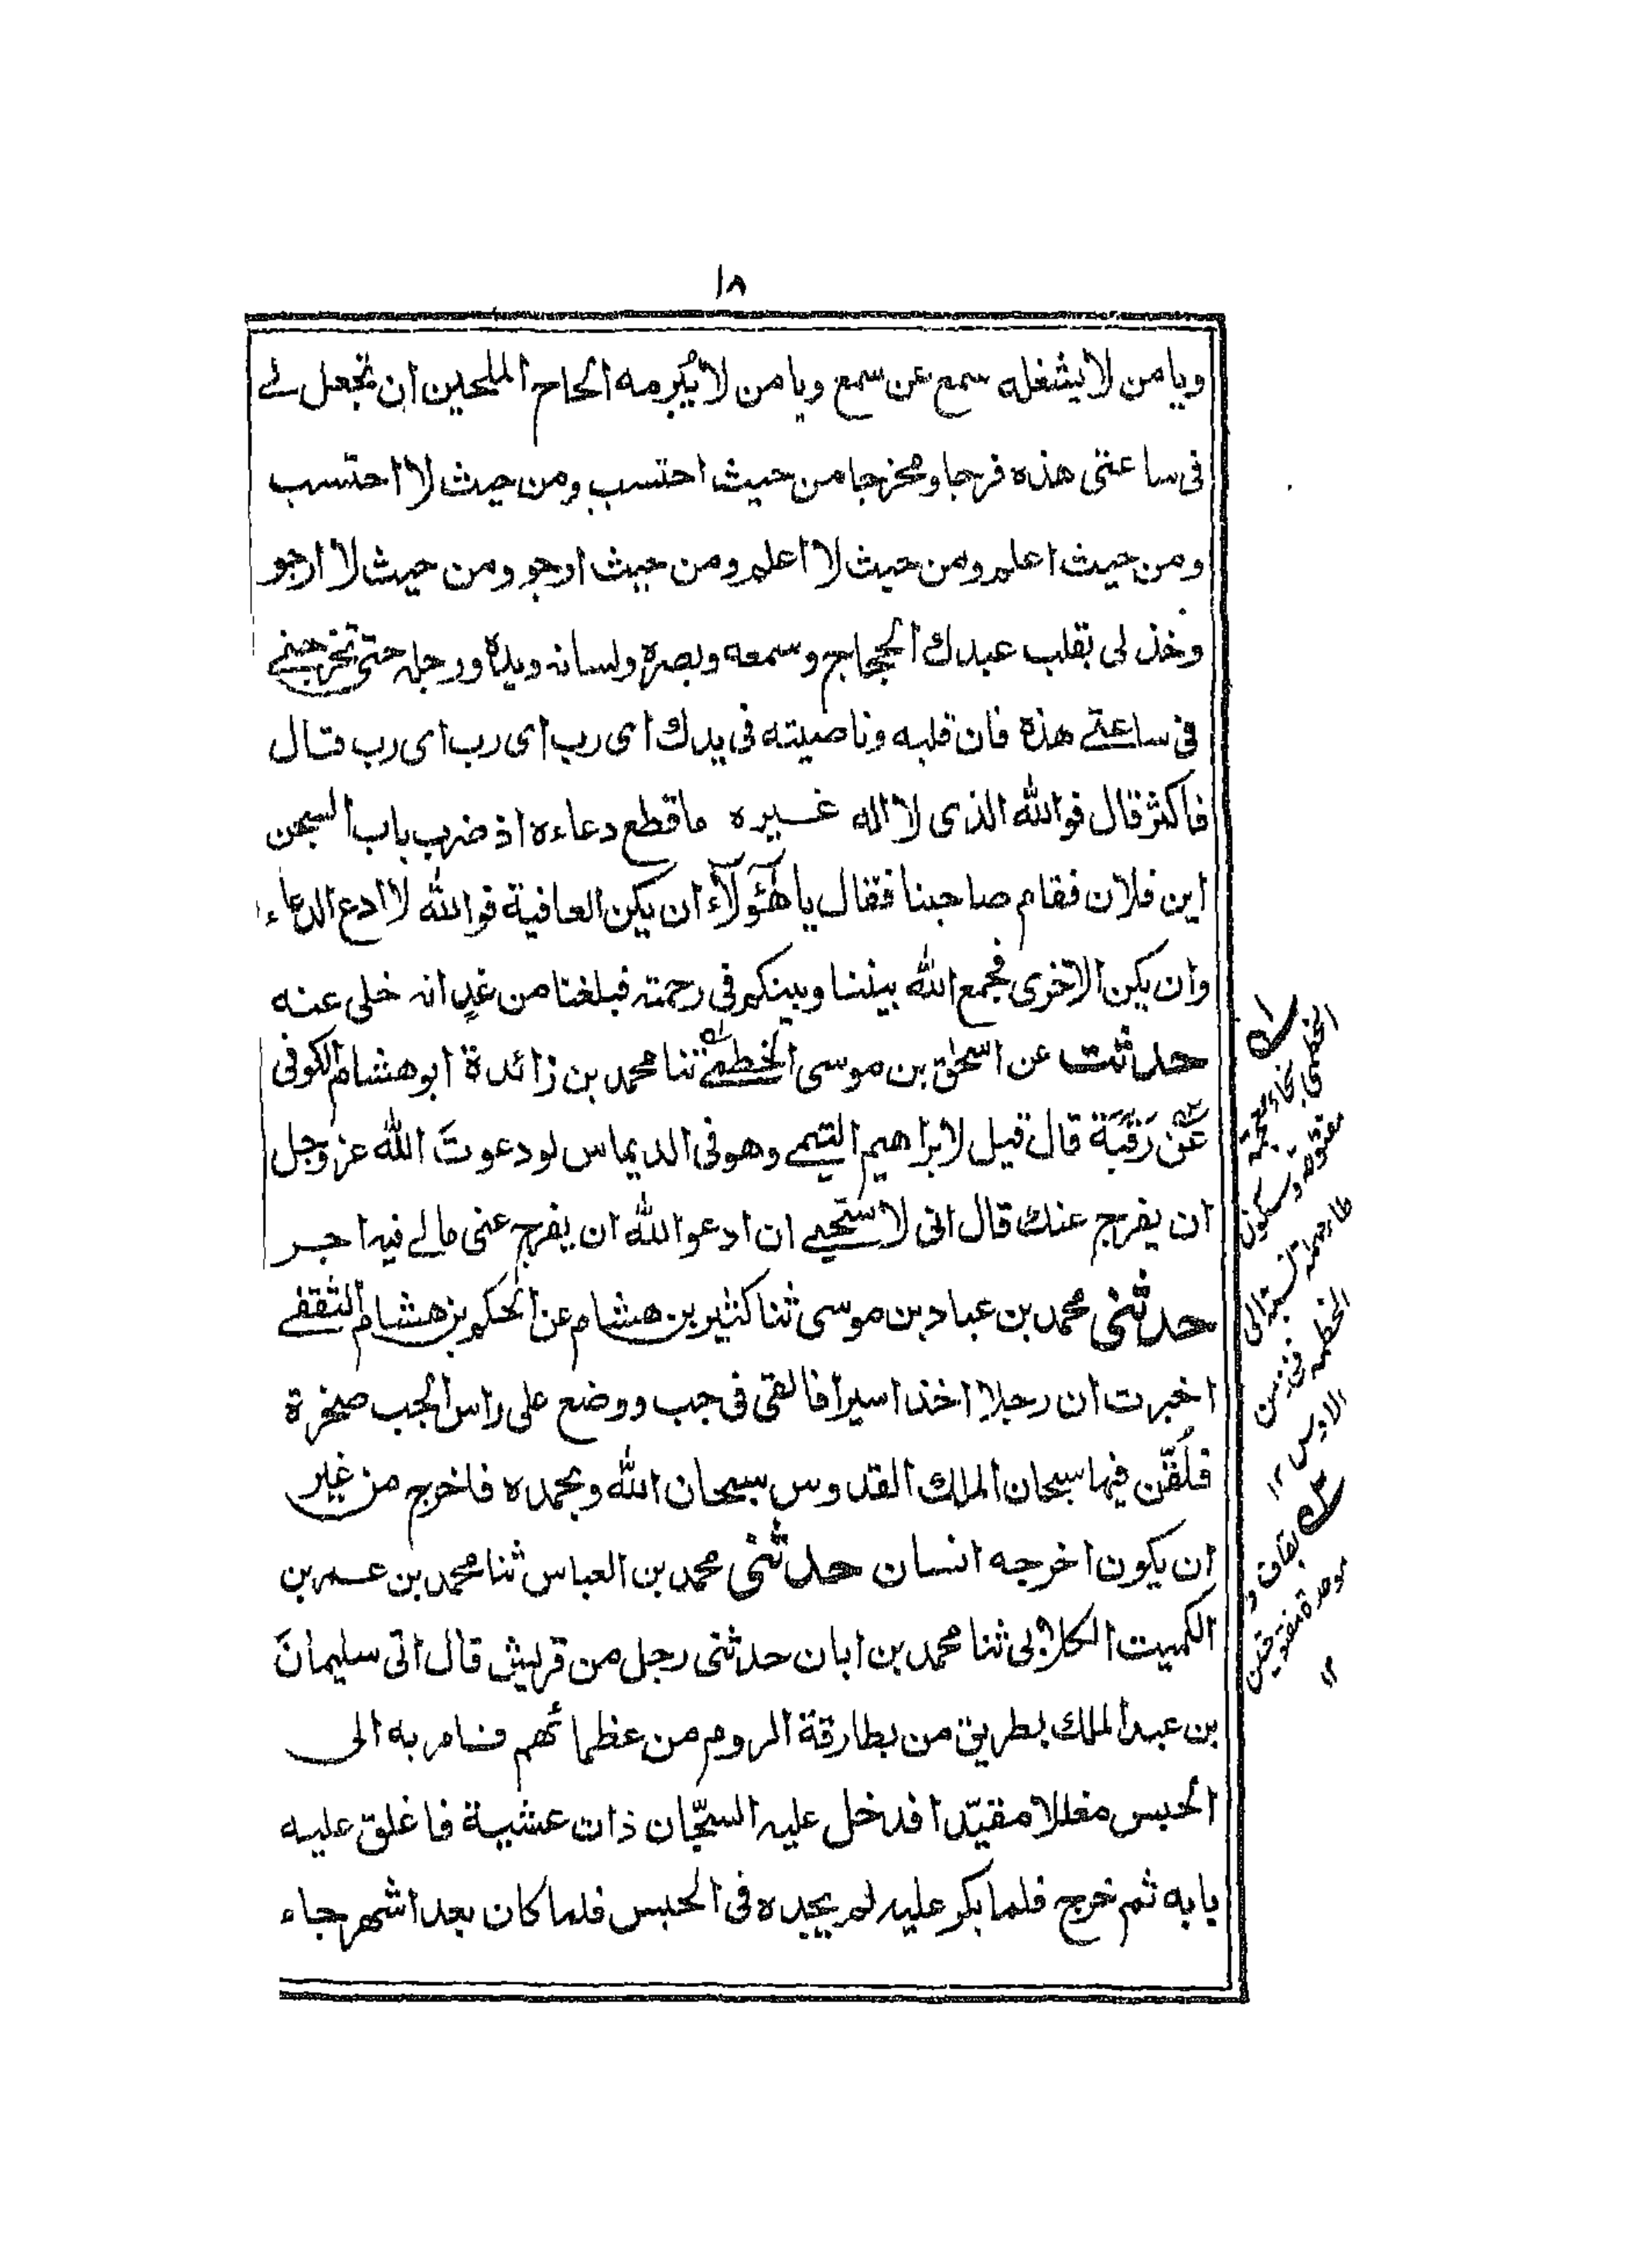 ١٨
ويامن لا يشغله سمع عن سمع ويا من لا يُبرمه الحاح الملحين ان تجعل لے
فى ساعتى هذه فرجا ومخرجا من حيث احتسب ومن حيث لا احتسب
ومن حيث اعلم ومن حيث لا اعلم ومن حيث ارجو ومن حيث لا ارجو
وخذ لى بقلب عبدك الحجاج وسمعه وبصره ولسانه ويده ورجله حتى تخرجنے
فى ساعتے هذه فان قلبه وناصيته فى يدك اى رب اى رب اى رب قال
فاكثر قال فوالله الذى لا اله غيره ما قطع دعاءه اذ ضرب باب السجن
اين فلان فقام صاحبنا فقال يا هٰٓؤلآء ان يكن العافية فوالله لا ادع الدعاء
وان يكن الاخرى فجمع الله بيننا وبينكم فى رحمته فبلغنا من غدٍ انه خلى عنه
حدثت عن اسحٰق بن موسى الخطمے ثنا محمد بن زائدة ابو هشام الكوفى
عَنْ رَقَبَة قال قيل لابراهيم التيمے وهو فى الديماس لو دعوتَ الله عزوجل
ان يفرج عنك قال انى لاستحيے ان ادعو الله ان يفرج عنى مالے فيه اجر
حدثنى محمد بن عباد بن موسى ثنا كثير بن هشام عن الحكم بن هشام الثقفے
اخبرت ان رجلا اخذ اسيرا فالقى فى جب ووضع على راس الجب صخرة
فلُقّن فيها سبحان الملك القدوس سبحان الله وبحمده فاخرج من غير
ان يكون اخرجه انسان حدثنى محمد بن العباس ثنا محمد بن عمر بن
الكميت الكلابى ثنا محمد بن ابان حدثنى رجل من قريش قال اتى سليمانَ
بن عبد الملك بطريق من بطارقة الروم من عظمائهم فسامر به الى
الحبس مغللا مقيّدا فدخل عليه السجّان ذات عشية فاغلق عليه
بابه ثم خرج فلما بكر عليه لم يجده فى الحبس فلما كان بعد اشهر جاء
الخطمى بخاء معجمة
مفتوحة وسكون
طاء مهملة نسبة الى
الخطمه فخذ من
الاوس ١٢
بقاف و
موحدة مفتوحتين
١٢